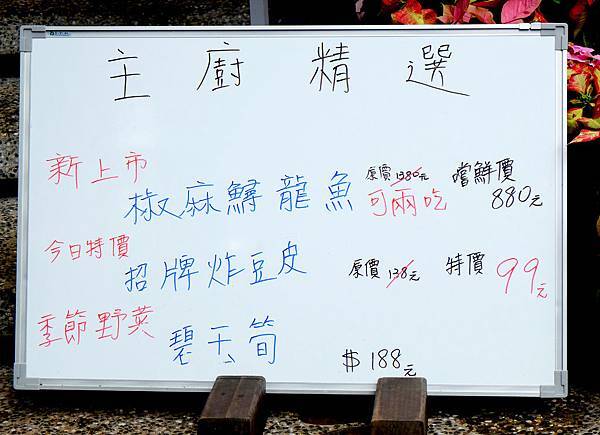 主廚精選
新上市
椒麻鱘龍魚 原價1380元 可兩吃 嚐鮮價 880元
今日特價
招牌炸豆皮 原價138元 特價 99元
季節野菜
碧玉筍 $188元